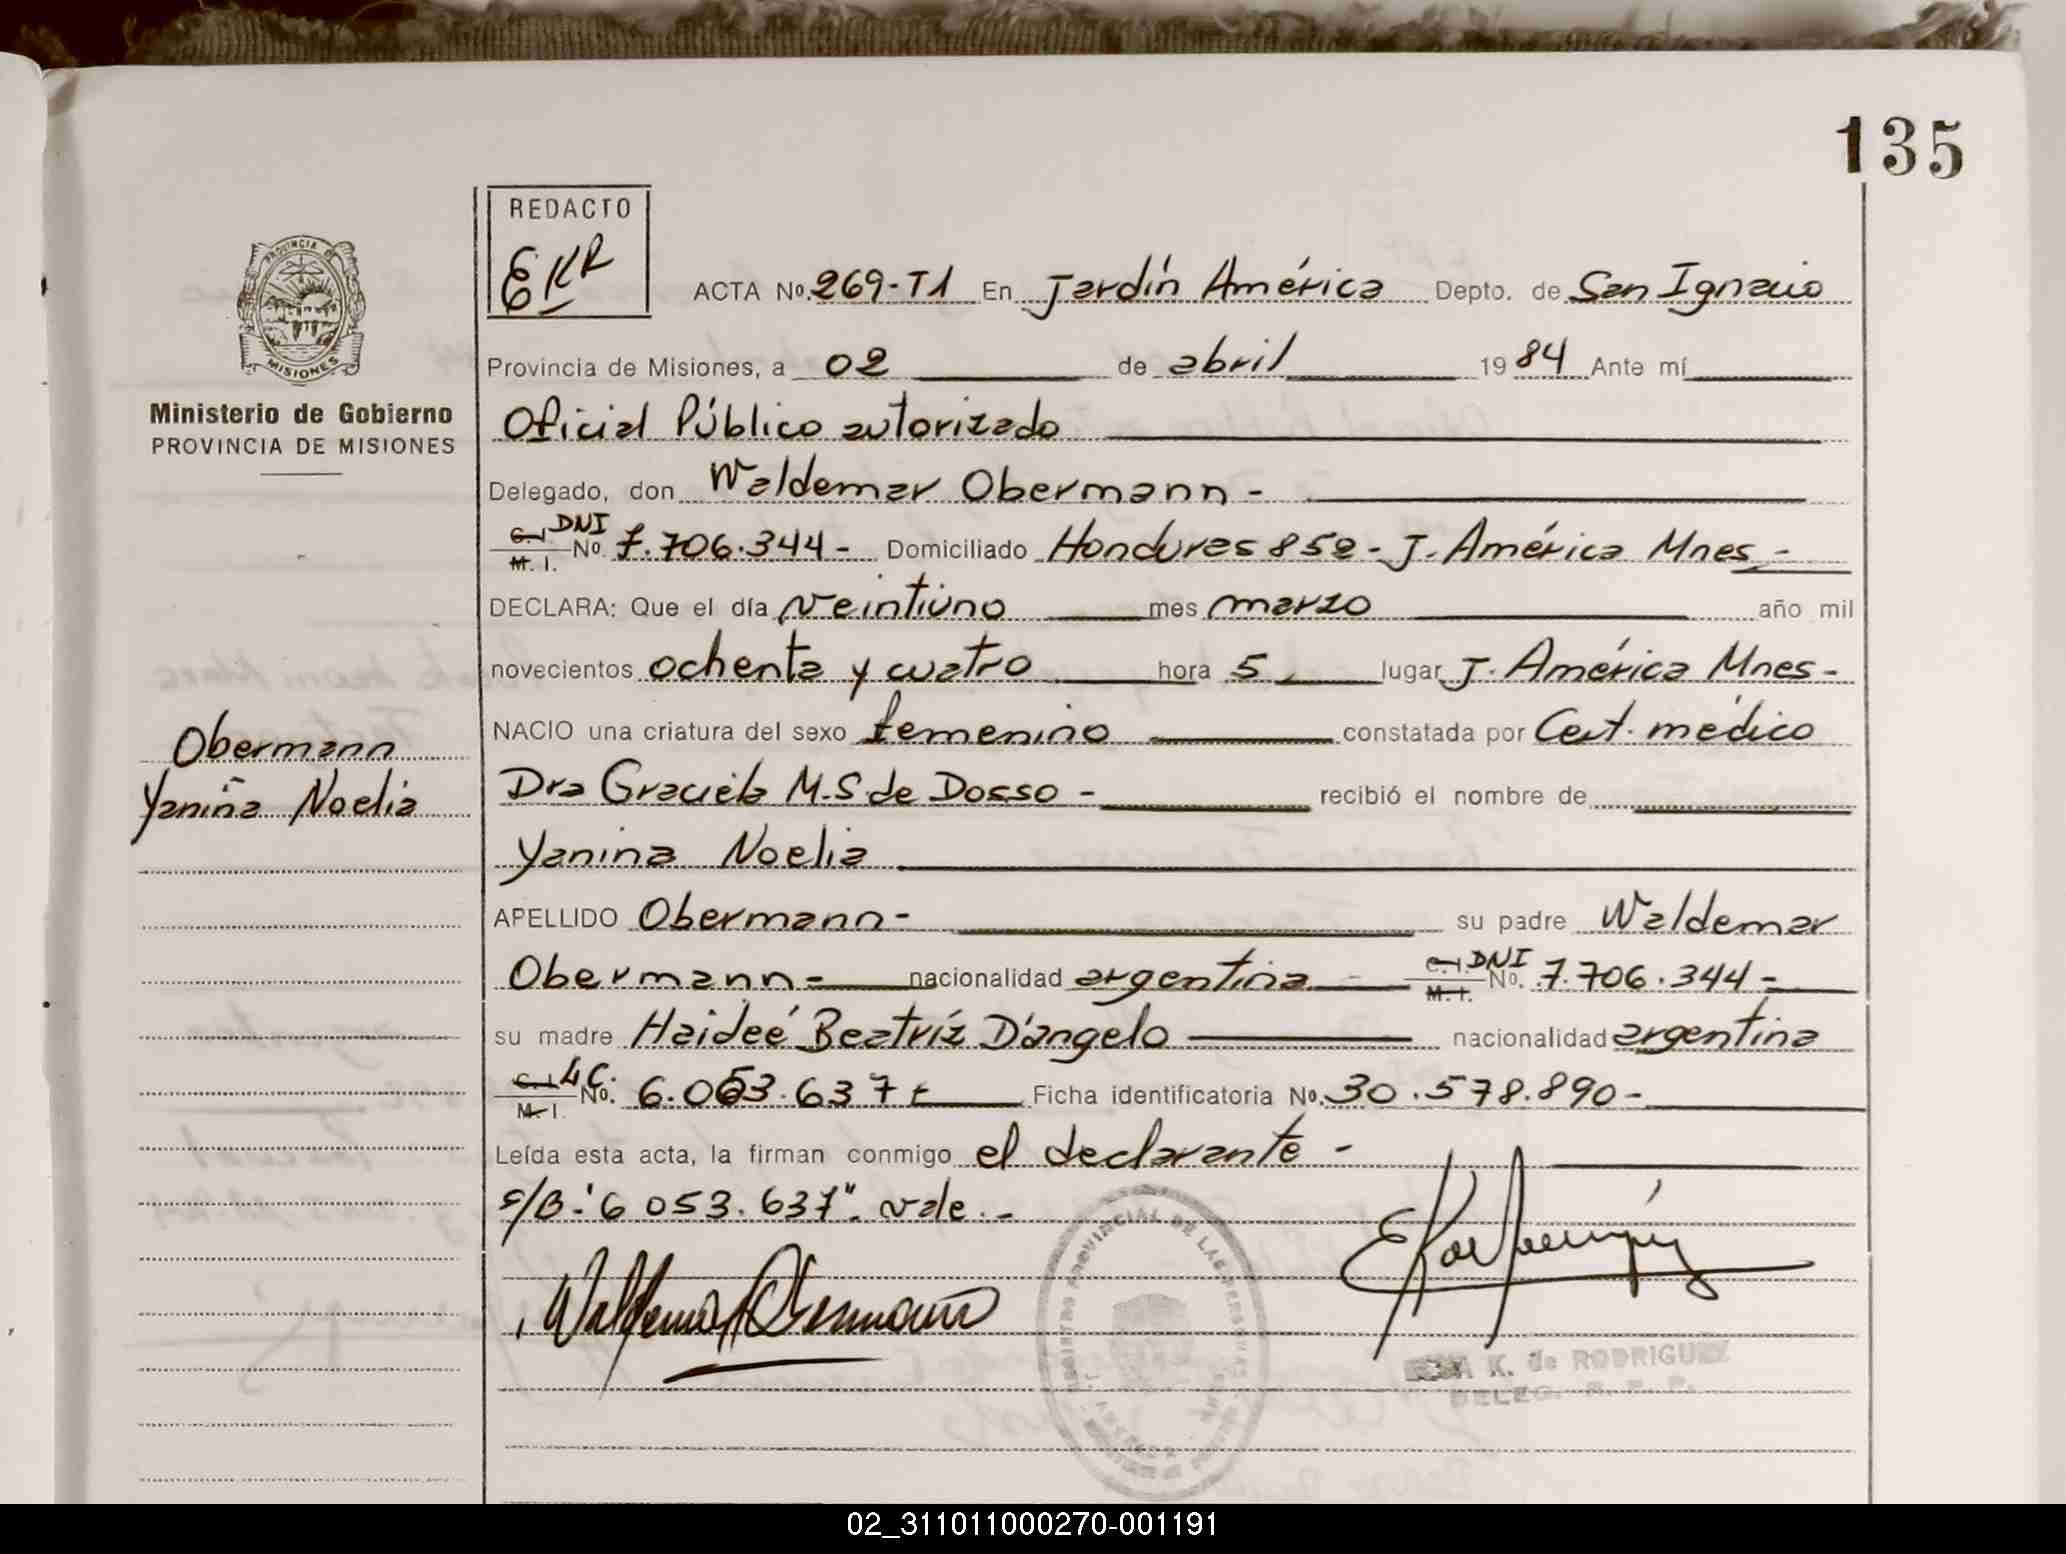 135
REDACTO
EKR
PROVINCIA DE
MISIONES
ACTA No. 269-T1 En Jardín América Depto. de San Ignacio
Provincia de Misiones, a 02 de abril 1984 Ante mí
Ministerio de Gobierno
PROVINCIA DE MISIONES
Oficial Público autorizado
Delegado, don Waldemar Obermann -
C.I. DNI
M. I. No. 7.706.344 - Domiciliado Honduras 852 - J. América Mnes -
DECLARA: Que el día veintiuno mes marzo año mil
novecientos ochenta y cuatro hora 5 lugar J. América Mnes -
NACIO una criatura del sexo femenino constatada por Cert. médico
Obermann
Yanina Noelia
Dra Graciela M.S de Dosso - recibió el nombre de
Yanina Noelia
APELLIDO Obermann - su padre Waldemar
Obermann - nacionalidad argentina - C.I. DNI M.I. No. 7.706.344 -
su madre Haideé Beatríz D'angelo nacionalidad argentina
C.I. LC. M.I. No. 6.053.637 Ficha identificatoria No. 30.578.890 -
Leída esta acta, la firman conmigo el declarante -
s/B: "6 053.637". vale. -
Waldemar Obermann
REGISTRO PROVINCIAL DE LAS PERSONAS
K. de RODRIGUEZ
DELEG. R. P. P.
02_311011000270-001191